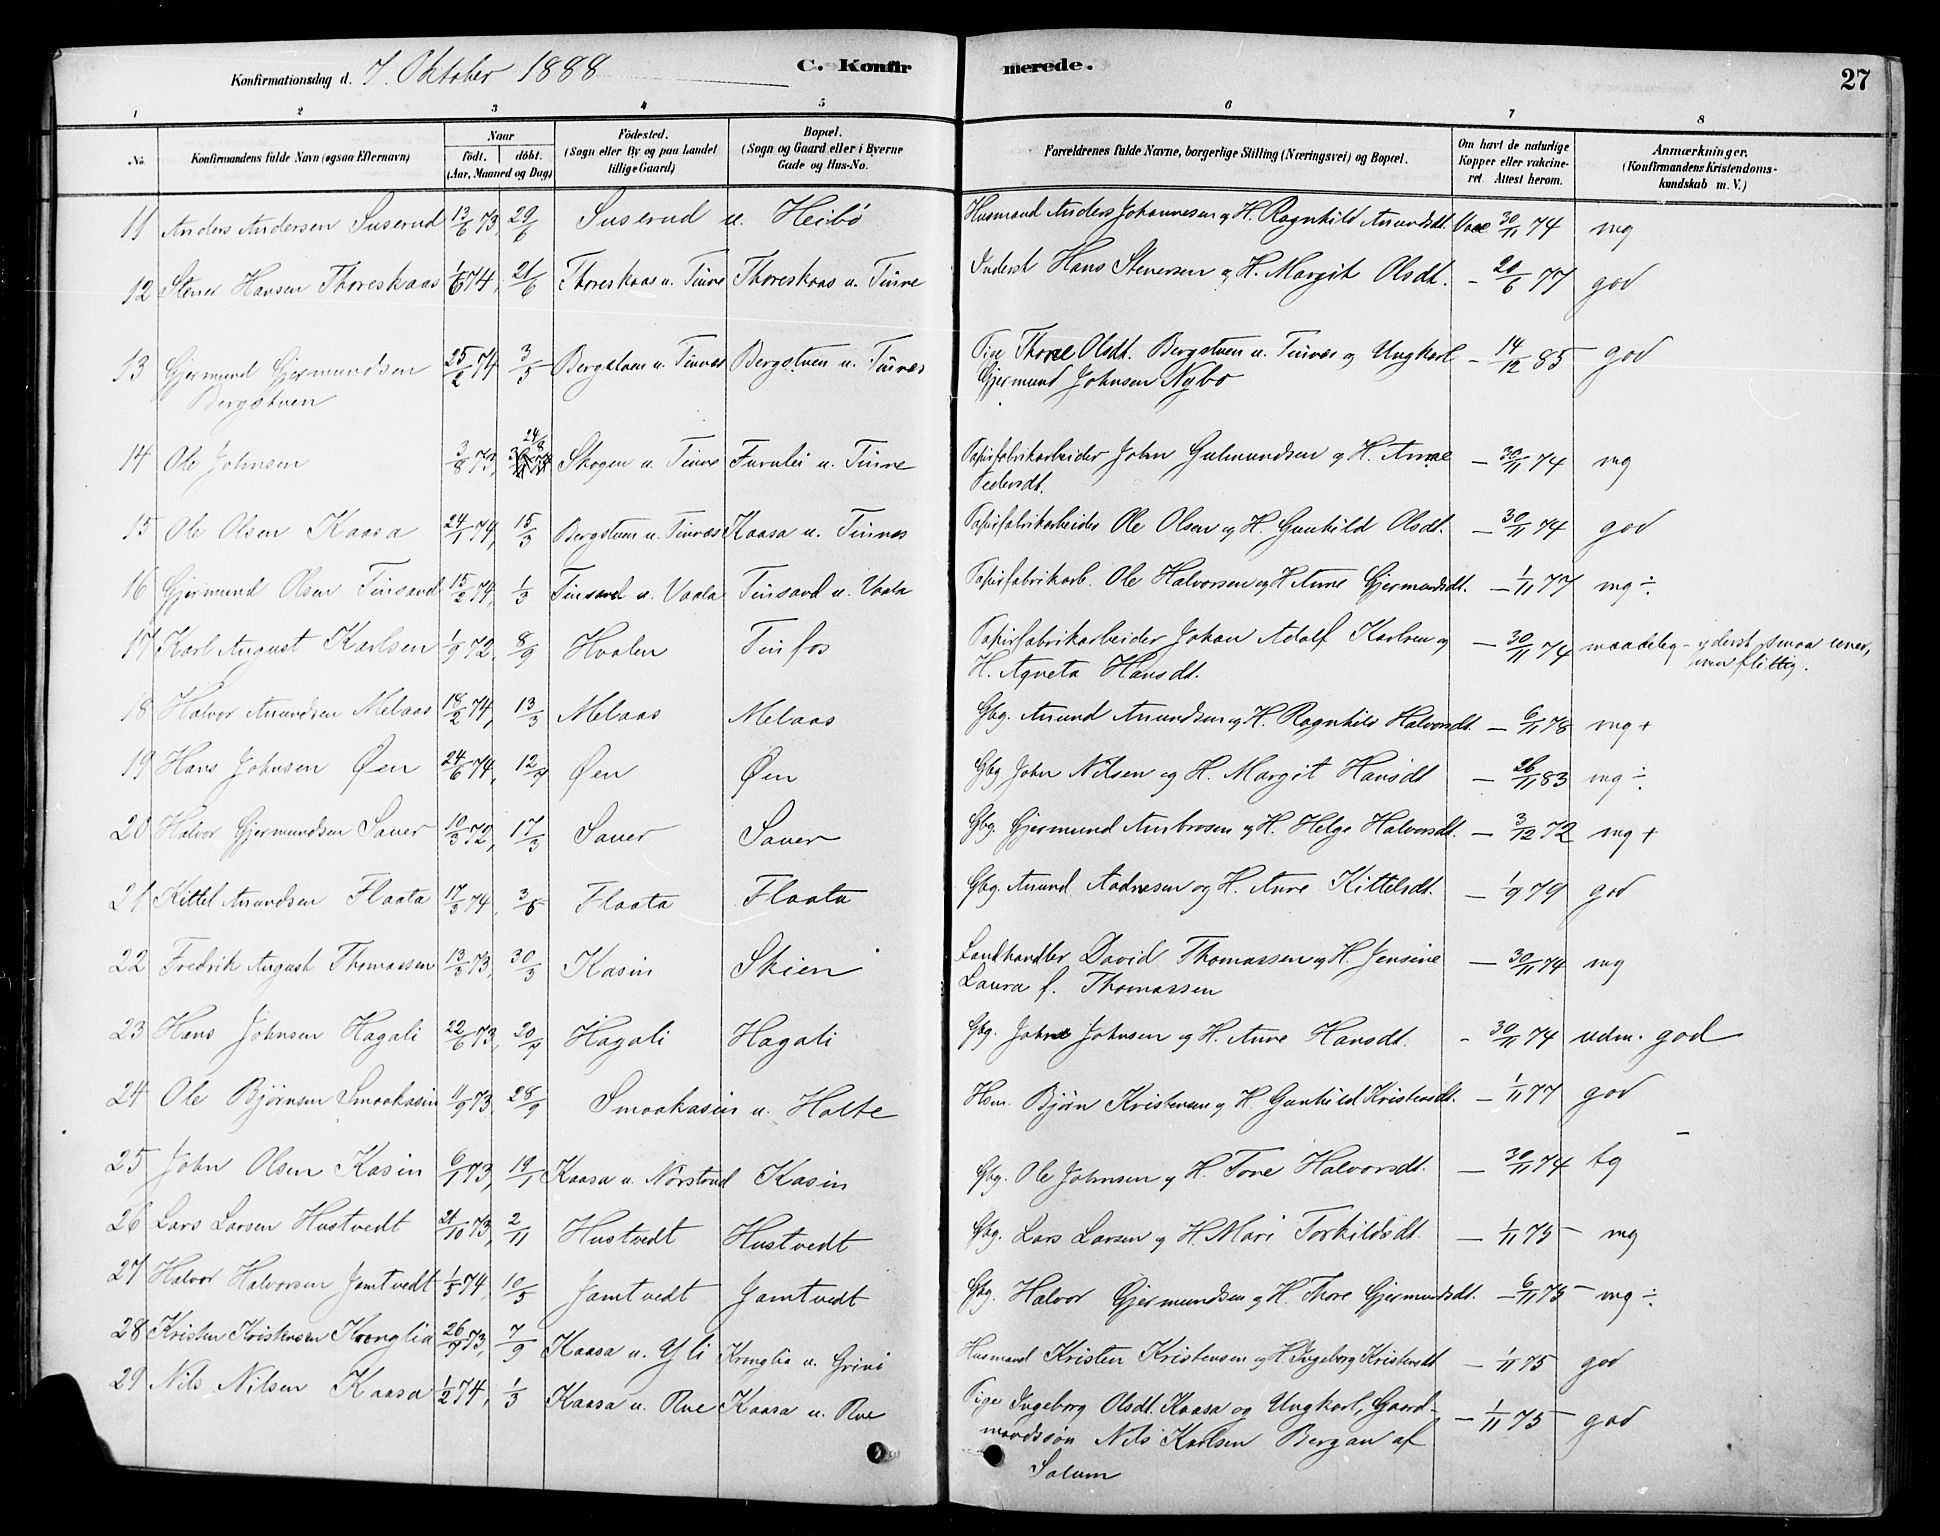 Konfirmationsdag d. 7. Oktober 1888 C. Konfirmerede. 27
1 2 3 4 5 6 7 8
No. Konfirmandens fulde Navn (ogsaa Efternavn) Naar födt. döbt. (Aar, Maaned og Dag) Födested. (Sogn eller By og paa Landet tillige Gaard) Bopæl. (Sogn og Gaard eller i Byerne Gade og Hus-No. Forældrenes fulde Navne, borgerlige Stilling (Næringsvei) og Bopæl. Om havt de naturlige Kopper eller vakcineret. Attest herom. Anmærkninger. (Konfirmandens Kristendomskundskab m. V.)
11 Anders Andersen Suserud 13/6 73, 29/6 Suserud u. Heibö Husmand Anders Johannesen og H. Ragnhild Amundsdt. Vac. 30/11 74 mg
12 Stener Hansen Thoreskaas 1/6 74, 21/6 Thoreskaas u. Tinne Thoreskaas u. Tinne Inderst Hans Stenersen og H. Margit Olsdt. - 20/6 77 god
13 Gjermund Gjermundsen 25/2 74 3/5 Bergstuen u. Tinnes Bergstuen u. Tinnes Pige Thone Olsdt. Bergstuen u. Tinnes og Ungkarl - 14/12 85 god
Bergstuen Gjermund Johnsen Nybö
14 Ole Johnsen 3/8 73, 24/8 Skogen u. Tinne Furulei u. Tinne Papirfabrikarbeider John Gulmundsen og H. Anne - 30/11 74 mg
Pedersdt.
15 Ole Olsen Kaasa 24/1 74, 15/3 Bergstuen u. Tinnes Kaasa u. Tinnes Papirfabrikarbeider Ole Olsen og H. Gunhild Olsdt. - 30/11 74 god
16 Gjermund Olsen Tinsand 15/2 74, 1/3 Tinsand u. Vaala Tinsand u. Vaala Papirfabrikarb. Ole Halvorsen og H. Anne Gjermundsdt. - 1/11 77 mg ÷
17 Karl August Karlsen 1/9 72, 8/9 Hvalen Tinfos Papirfabrikarbeider Johan Adolf Karlsen og - 30/11 74 maadelig - yderst smaa evner,
H. Agneta Hansdt. men flittig.
18 Halvor Amundsen Melaas 18/2 74, 13/3 Melaas Melaas Gbg. Amund Amundsen og H. Ragnhild Halvorsdt. - 6/11 78 mg +
19 Hans Johnsen Øen 24/6 74, 12/7 Øen Øen Gbg John Nilsen og H. Margit Hansdt - 26/11 83 mg ÷
20 Halvor Gjermundsen Sauer 10/3 72, 17/3 Sauer Sauer Gbg. Gjermund Ambrosen og H. Helge Halvorsdt. - 3/12 72 mg +
21 Kittel Amundsen Flaata 17/3 74, 3/5 Flaata Flaata Gbg. Amund Aadnesen og H. Anne Kittelsdt. - 1/9 79 god
22 Fredrik August Thomassen 13/3 73, 30/3 Kasin Skien Landhandler David Thomassen og H. Jensine - 30/11 74 mg
Laura f. Thomassen
23 Hans Johnsen Hagali 22/6 73, 20/7 Hagali Hagali Gbg. John Johnsen og H. Anne Hansdt. - 30/11 74 udm. god
24 Ole Bjørnsen Smaakasin 11/9 73, 28/9 Smaakasin u. Holte Hsm. Bjørn Kristensen og H. Gunhild Kristensdt. - 1/11 77 god
25 John Olsen Kasin 6/1 73, 19/1 Kaasa u. Norstrud Kasin Gbg. Ole Johnsen og H. Tone Halvorsdt. - 30/11 74 tg
26 Lars Larsen Hustvedt 21/10 73, 2/11 Hustvedt Hustvedt Gbg. Lars Larsen og H. Mari Torkildsdt. - 1/11 75 - mg
27 Halvor Halvorsen Jamtvedt 1/5 74, 10/5 Jamtvedt Jamtvedt Gbg. Halvor Gjermundsen og H. Thore Gjermundsdt. - 6/11 75 - mg ÷
28 Kristen Kristensen Kronglia 26/7 73, 7/9 Kaasa u. Yli Kronglia u. Grini Husmand Kristen Kristensen og H. Ingeborg Kristensdt - 1/11 75 god
29 Nils Nilsen Kaasa 1/2 74, 1/3 Kaasa u. Rue Kaasa u. Rue Pige Ingeborg Olsdt. Kaasa og Ungkarl, Gaard- - 1/11 75 - god
mandssön Nils Karlsen Bergan af
Solum